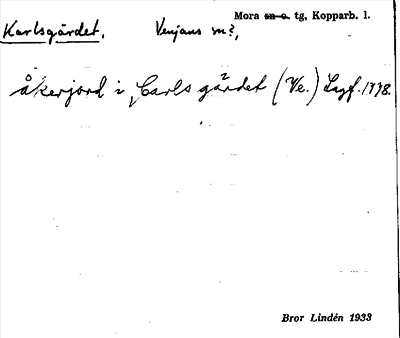 Mora sn o. tg, Kopparb. l.
Karlsgärdet. Venjans sn?,
åkerjord i Carls gärdet (Ve.) Lagf. 1778.
Bror Lindén 1933